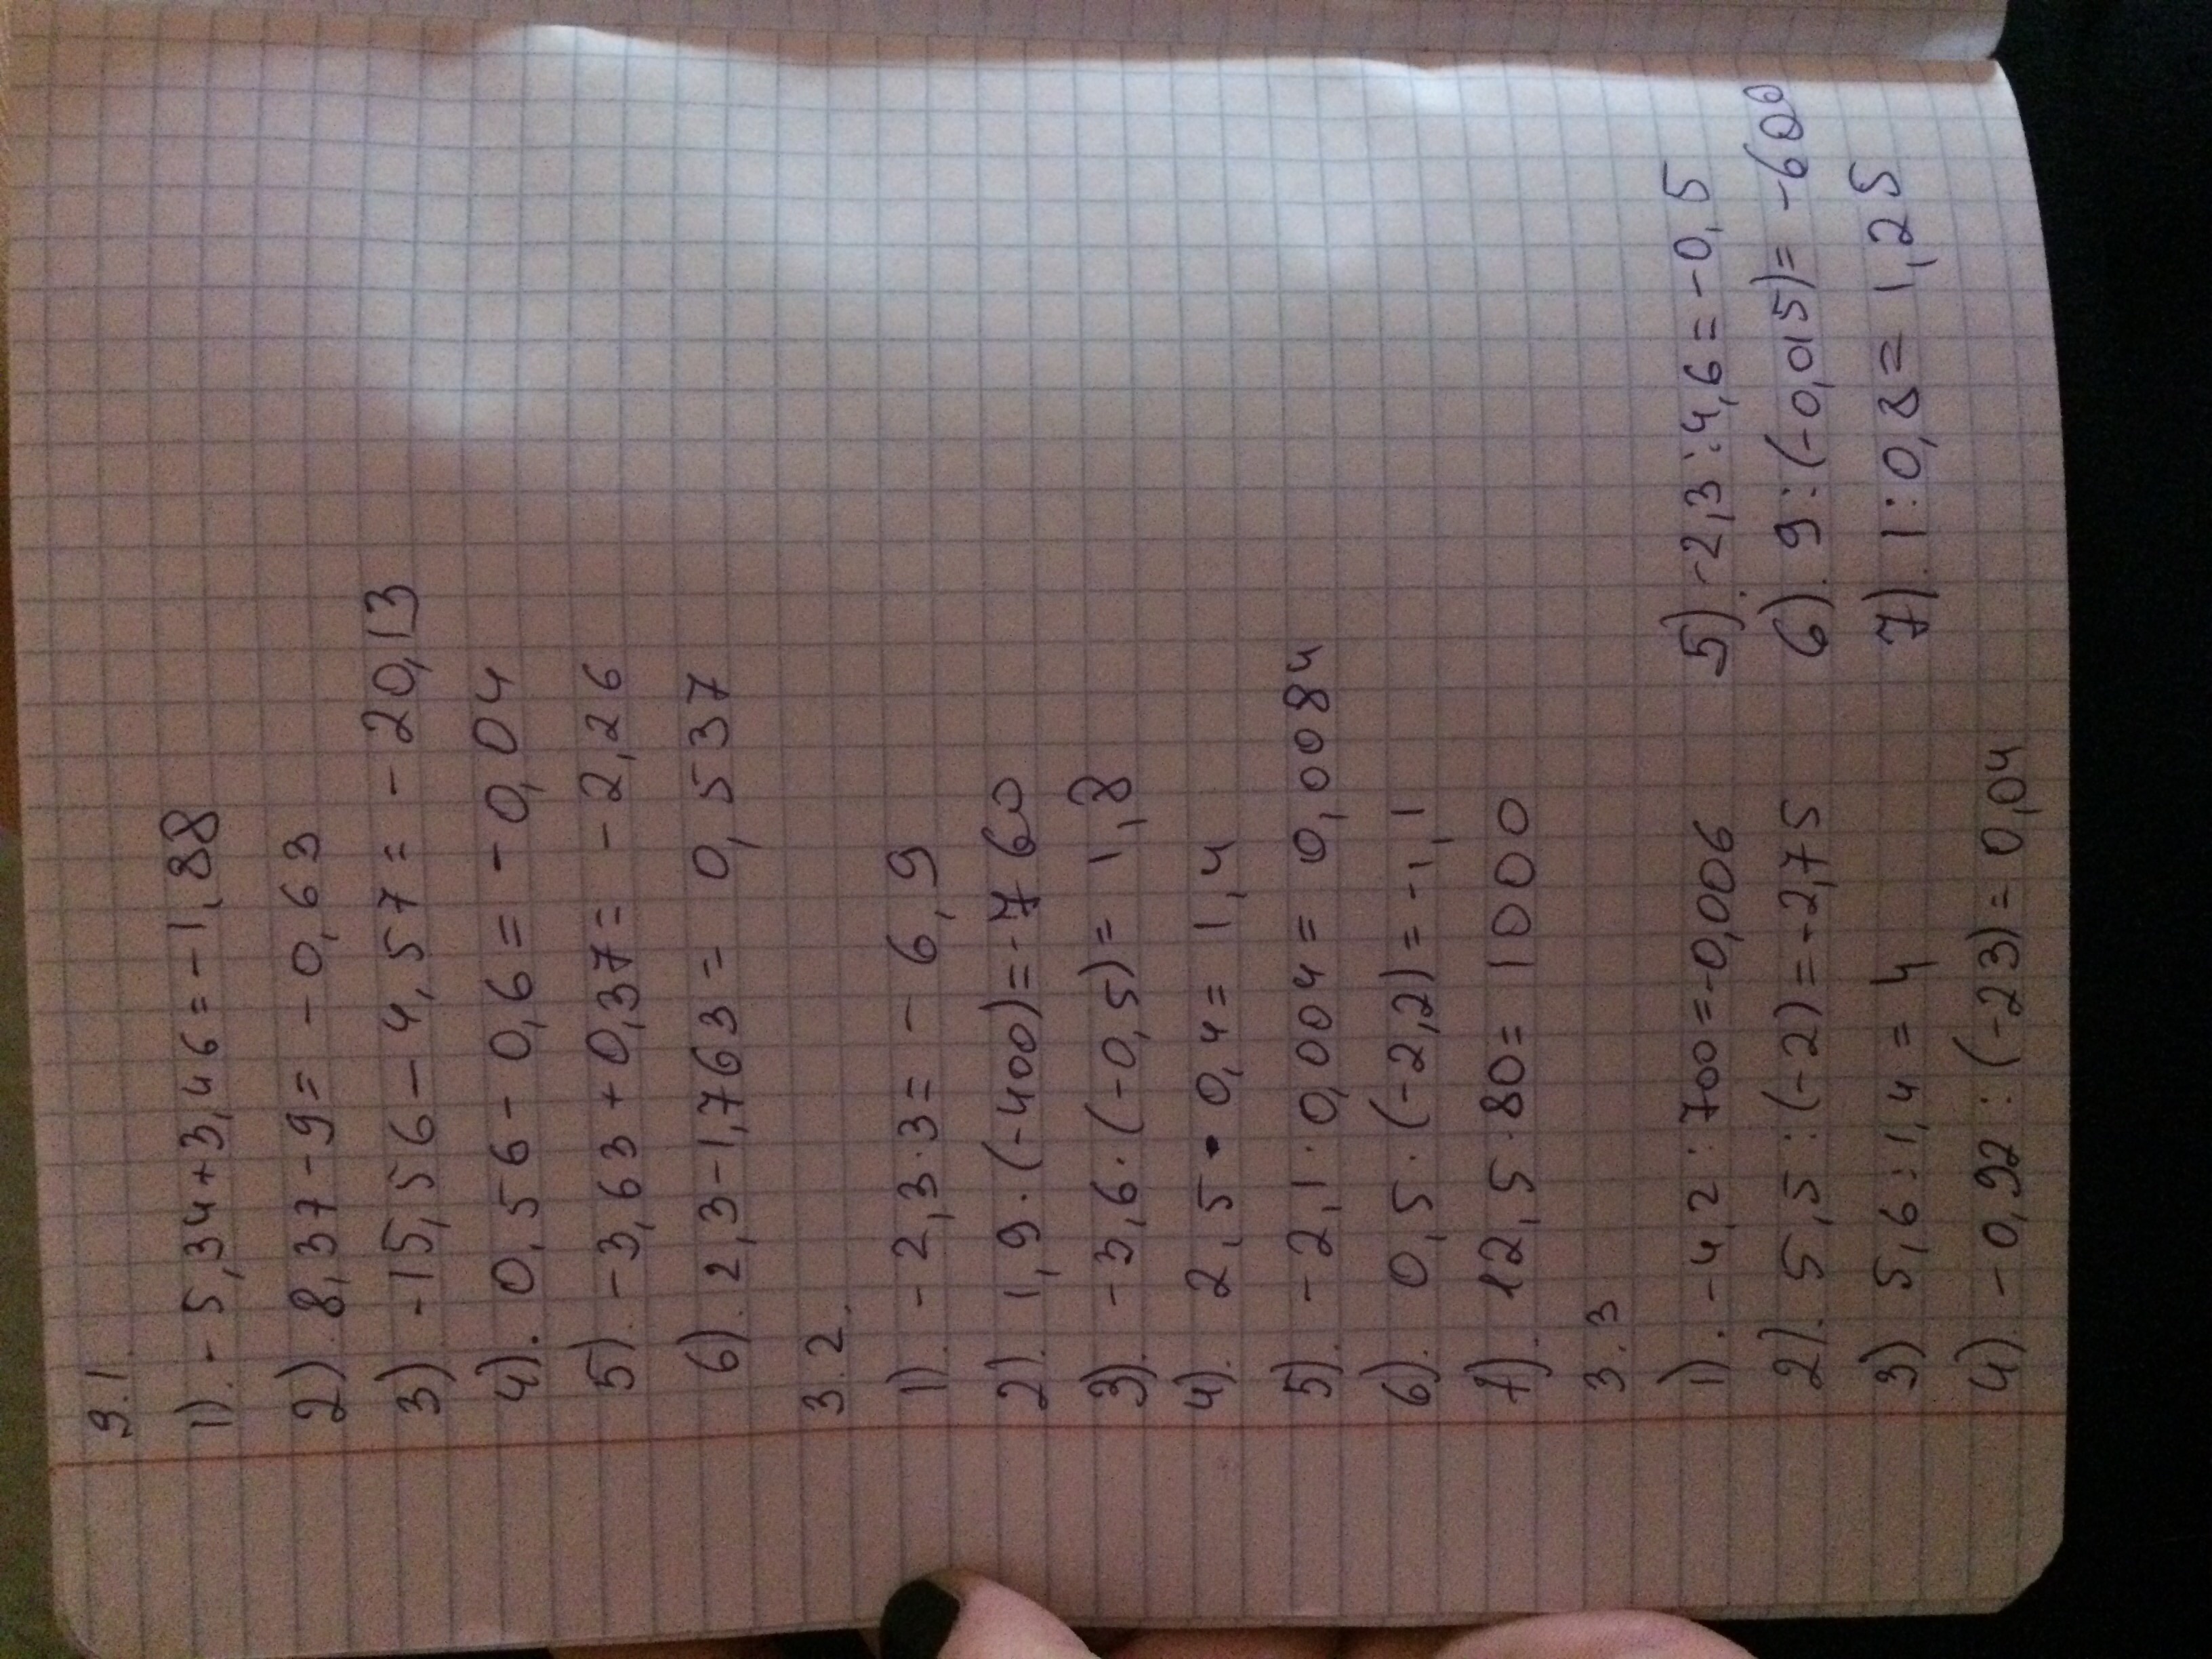 9.1.
1). -5,34+3,46=-1,88
2). 8,37-9=-0,63
3) -15,56-4,57=-20,13
4). 0,56-0,6=-0,04
5). -3,63+0,37=-2,26
6). 2,3-1,763= 0,537
3.2.
1). -2,3·3=-6,9
2). 1,9·(-400)=-760
3). -3,6·(-0,5)=1,8
4). 2,5·0,4=1,4
5). -2,1·0,004=0,0084
6). 0,5·(-2,2)=-1,1
7). 12,5·80=1000
3.3
1). -4,2:700=-0,006
2). 5,5:(-2)=-2,75
3) 5,6:1,4=4
4). -0,92:(-23)=0,04
5). -2,3:4,6=-0,5
6). 9:(-0,015)=-600
7). 1:0,8=1,25